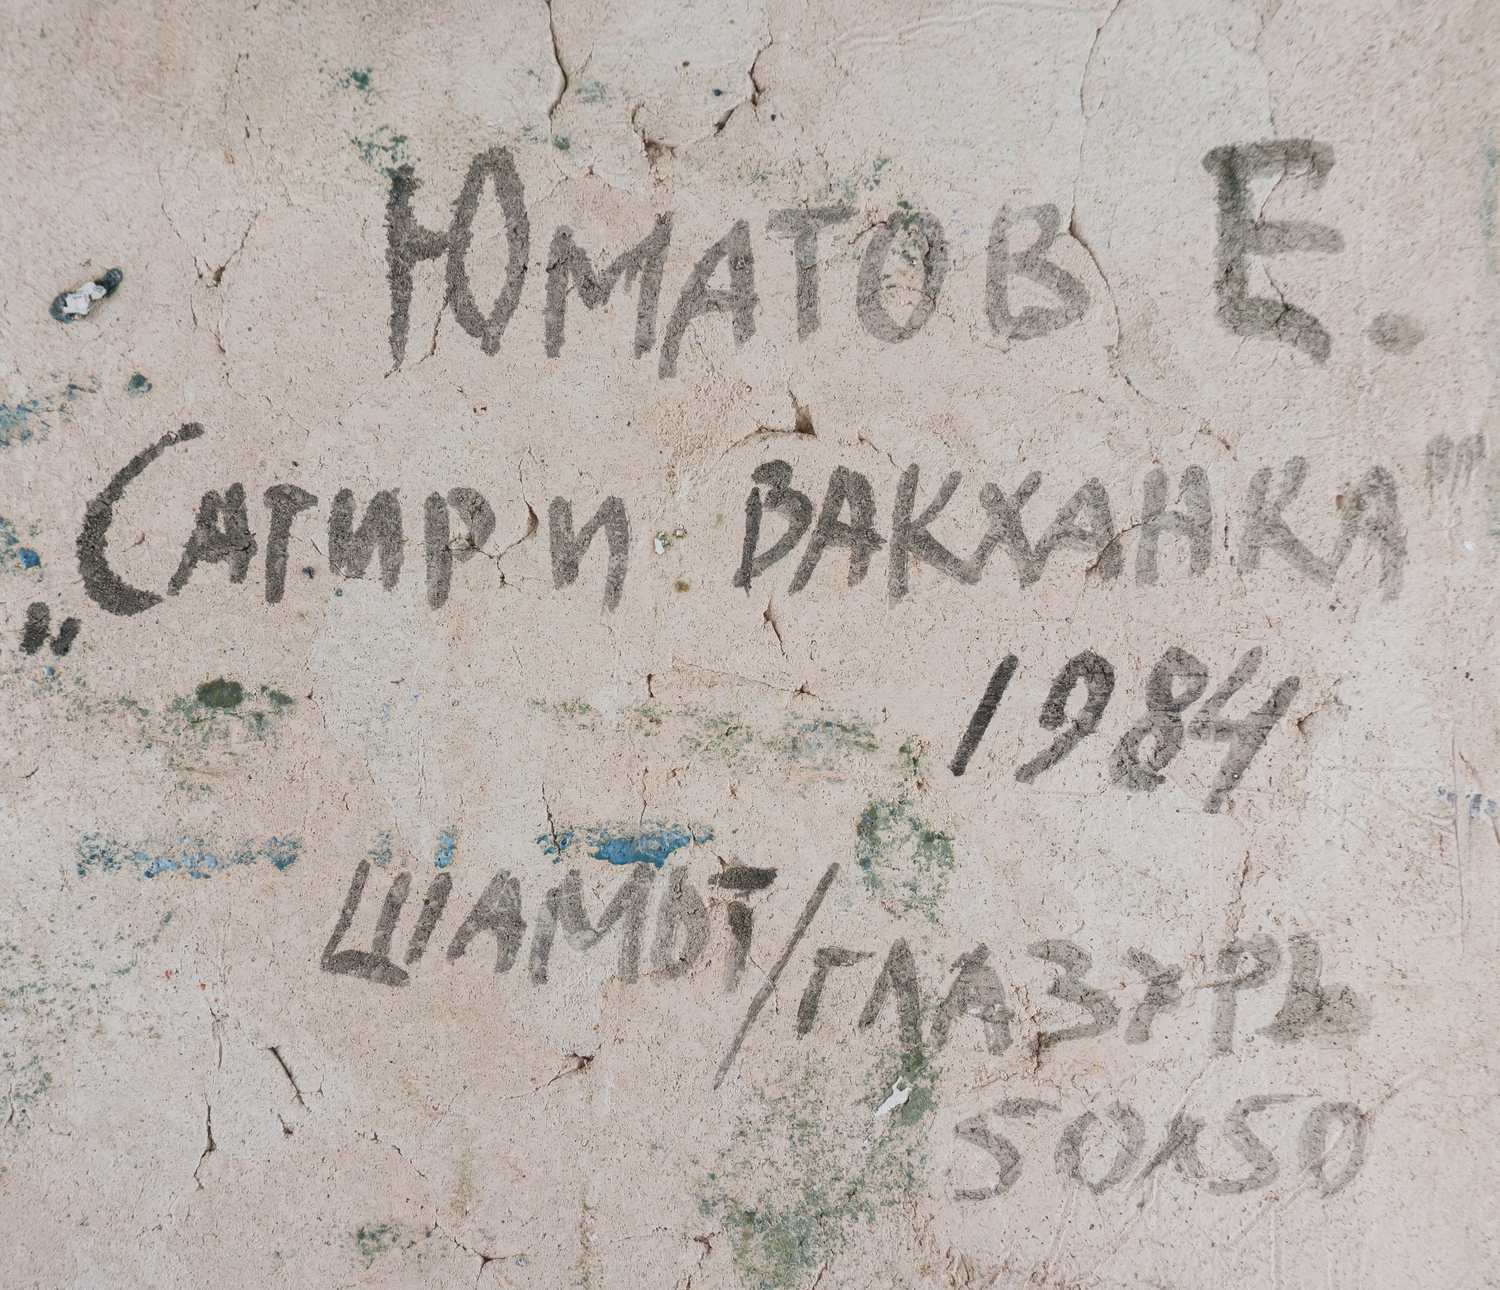 Юматов Е.
„Сатир и Вакханка"
1984
шамот/глазурь
50х50